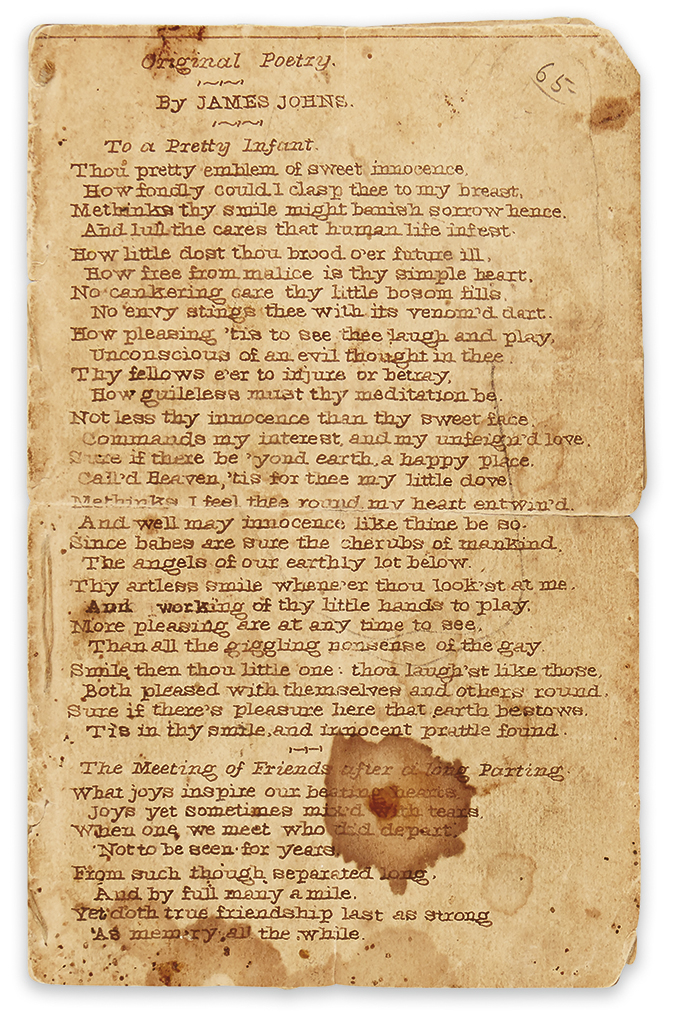 Original Poetry.
65-
By JAMES JOHNS.
To a Pretty Infant.
Thou pretty emblem of sweet innocence,
How fondly could I clasp thee to my breast,
Methinks thy smile might banish sorrow hence.
And lull the cares that human life infest.
How little dost thou brood o'er future ill,
How free from malice is thy simple heart,
No cankering care thy little bosom fills,
No envy stings thee with its venom'd dart.
How pleasing 'tis to see thee laugh and play,
Unconscious of an evil thought in thee.
Thy fellows e'er to injure or betray,
How guileless must thy meditation be.
Not less thy innocence than thy sweet face,
Commands my interest, and my unfeign'd love.
Sure if there be 'yond earth, a happy place.
Call'd Heaven, 'tis for thee my little dove
Methinks I feel thee round my heart entwin'd.
And well may innocence like thine be so.
Since babes are sure the cherubs of mankind,
The angels of our earthly lot below.
Thy artless smile whene'er thou look'st at me,
And working of thy little hands to play,
More pleasing are at any time to see,
Than all the giggling nonsense of the gay.
Smile then thou little one: thou laugh'st like those,
Both pleased with themselves and others' round,
Sure if there's pleasure here that earth bestows.
'Tis in thy smile, and innocent prattle found.
The Meeting of Friends after a long Parting.
What joys inspire our beating hearts,
Joys yet sometimes mix'd with tears,
When one, we meet who did depart,
Not to be seen for years,
From such though separated long,
And by full many a mile.
Yet doth true friendship last as strong
As memory, all the while.